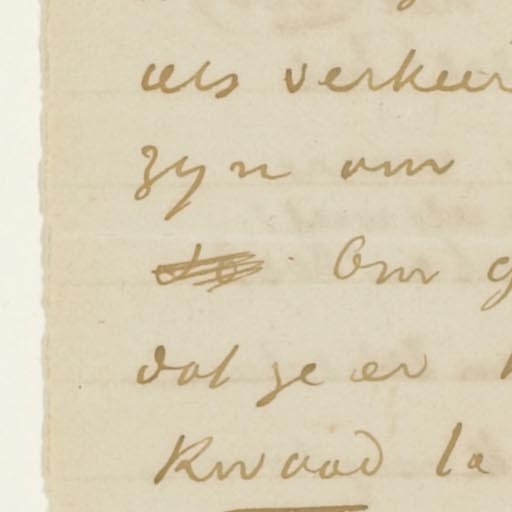 als verkeer
zyn om
Om g
dat ge er
Kwaad la